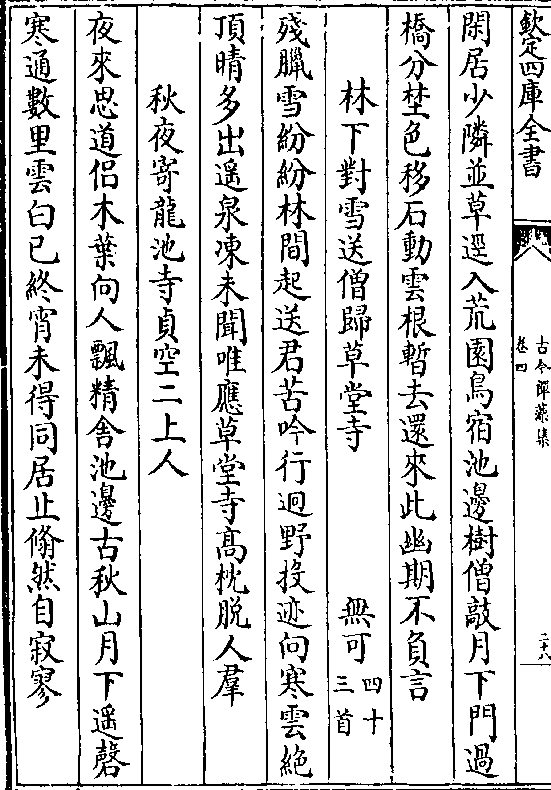 欽定四庫全書
古今禪藻集
卷四
二十八
閑居少隣並草逕入荒園鳥宿池邊樹僧敲月下門過
橋分埜色移石動雲根暫去還來此幽期不負言
林下對雪送僧歸草堂寺 無可 四十三首
殘臘雪紛紛林間起送君苦吟行迥野投迹向寒雲絶
頂晴多出遥泉凍未聞唯應草堂寺髙枕脱人羣
秋夜寄龍池寺貞空二上人
夜來思道侣木葉向人飄精舍池邊古秋山月下遥磬
寒通數里雲白已終宵未得同居止翛然自寂寥